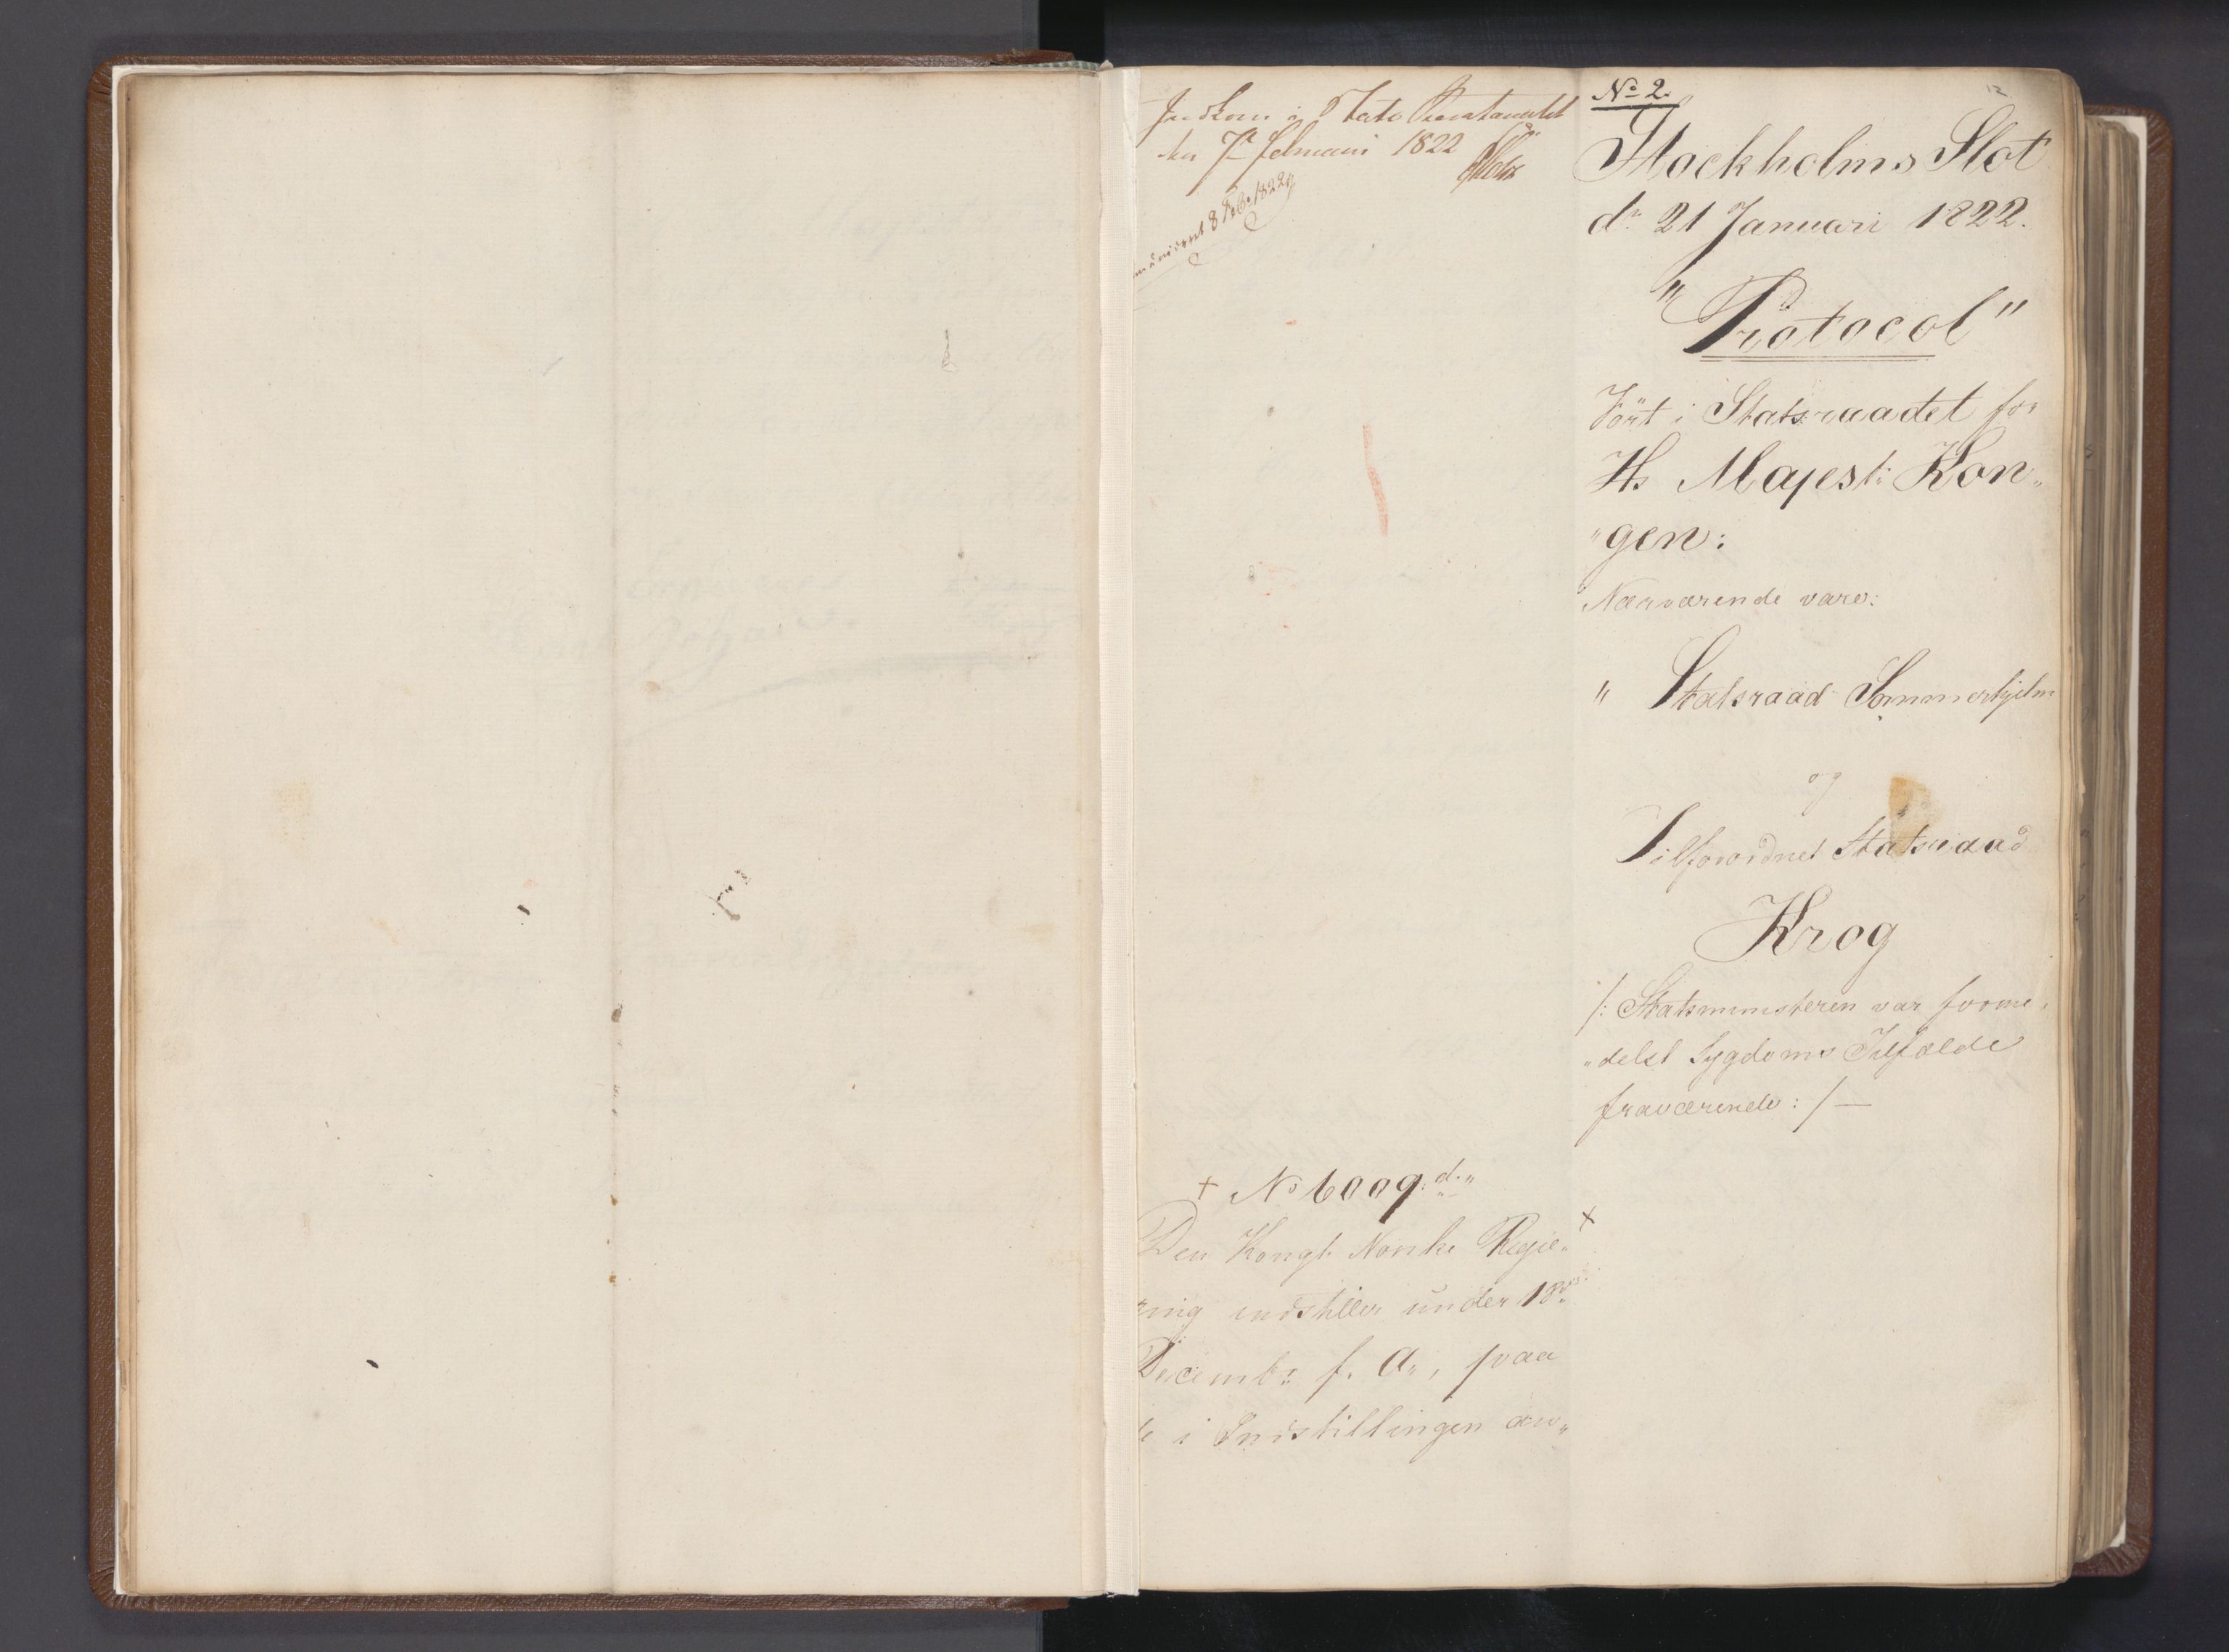 Indkom i Stats Secretariatet
den 7de februari 1822
8 Feb. 1822
No 2.
12
Stockholms Slot
dn 21 Januari 1822.
"Protocol"
Fört i Statsraadet for
Hs Majest: Kon„
„gen:
Nærværende vare:
" Statsraad Sommerhjelm
og
Tilforordnet Statsraad
Krog
/: Statsministeren var forme„
„delst Sygdoms Tilfælde
fraværende :/ —
+ No 6009.d.„
Den Kongl. Norske Regje„ +
ring indstiller under 18de
Decembr. f. A., paa
de i Indstillingen an„